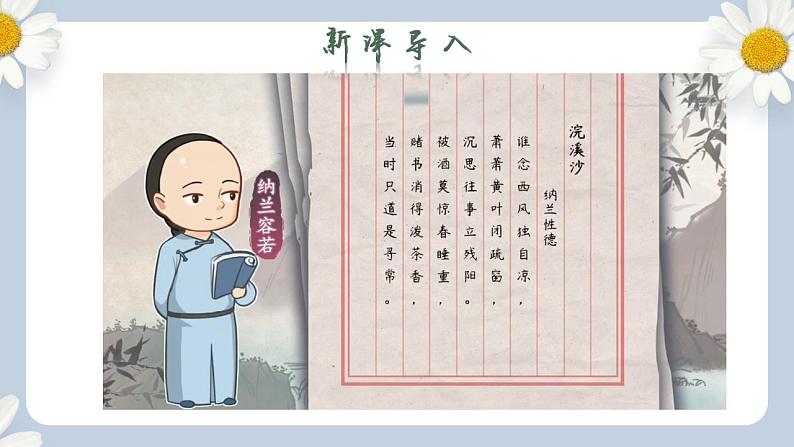 新课导入
浣溪沙
纳兰性德
谁念西风独自凉，
萧萧黄叶闭疏窗，
沉思往事立残阳。
被酒莫惊春睡重，
赌书消得泼茶香，
当时只道是寻常。
纳兰容若